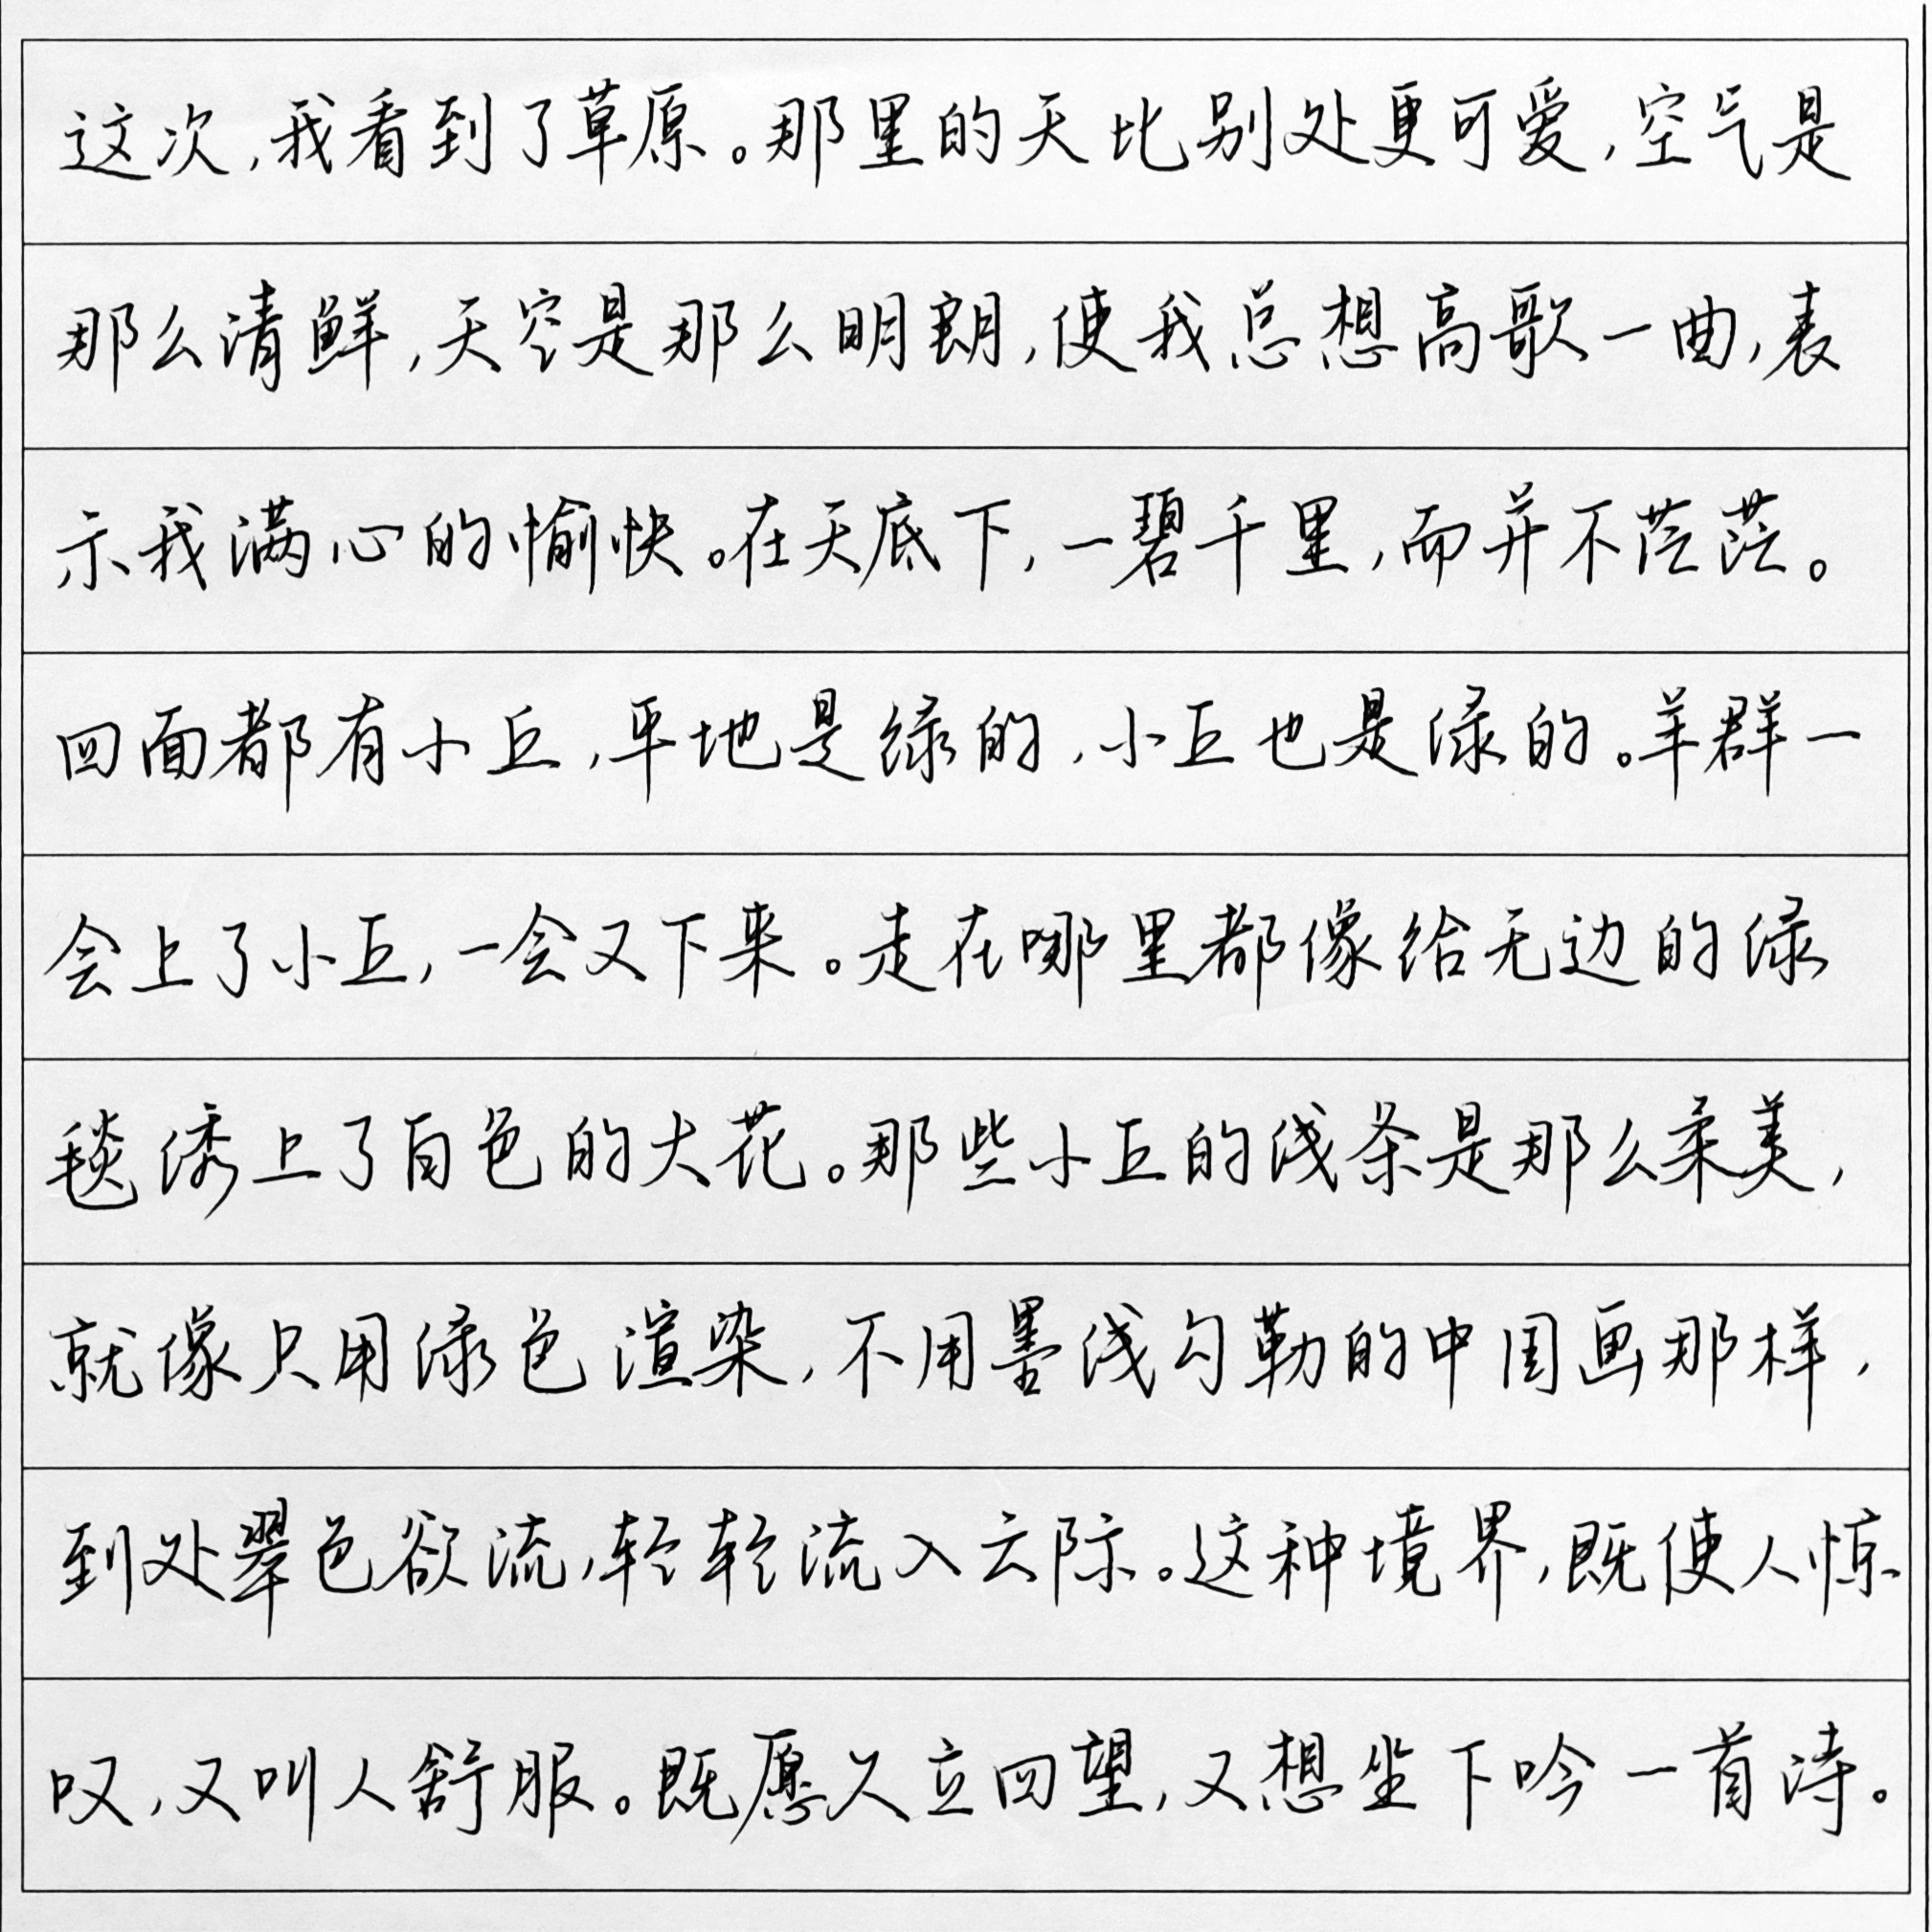 这次,我看到了草原。那里的天比别处更可爱,空气是
那么清鲜,天空是那么明朗,使我总想高歌一曲,表
示我满心的愉快。在天底下,一碧千里,而并不茫茫。
四面都有小丘,平地是绿的,小丘也是绿的。羊群一
会上了小丘,一会又下来。走在哪里都像给无边的绿
毯绣上了白色的大花。那些小丘的线条是那么柔美,
就像只用绿色渲染,不用墨线勾勒的中国画那样,
到处翠色欲流,轻轻流入云际。这种境界,既使人惊
叹,又叫人舒服。既愿久立四望,又想坐下吟一首诗。